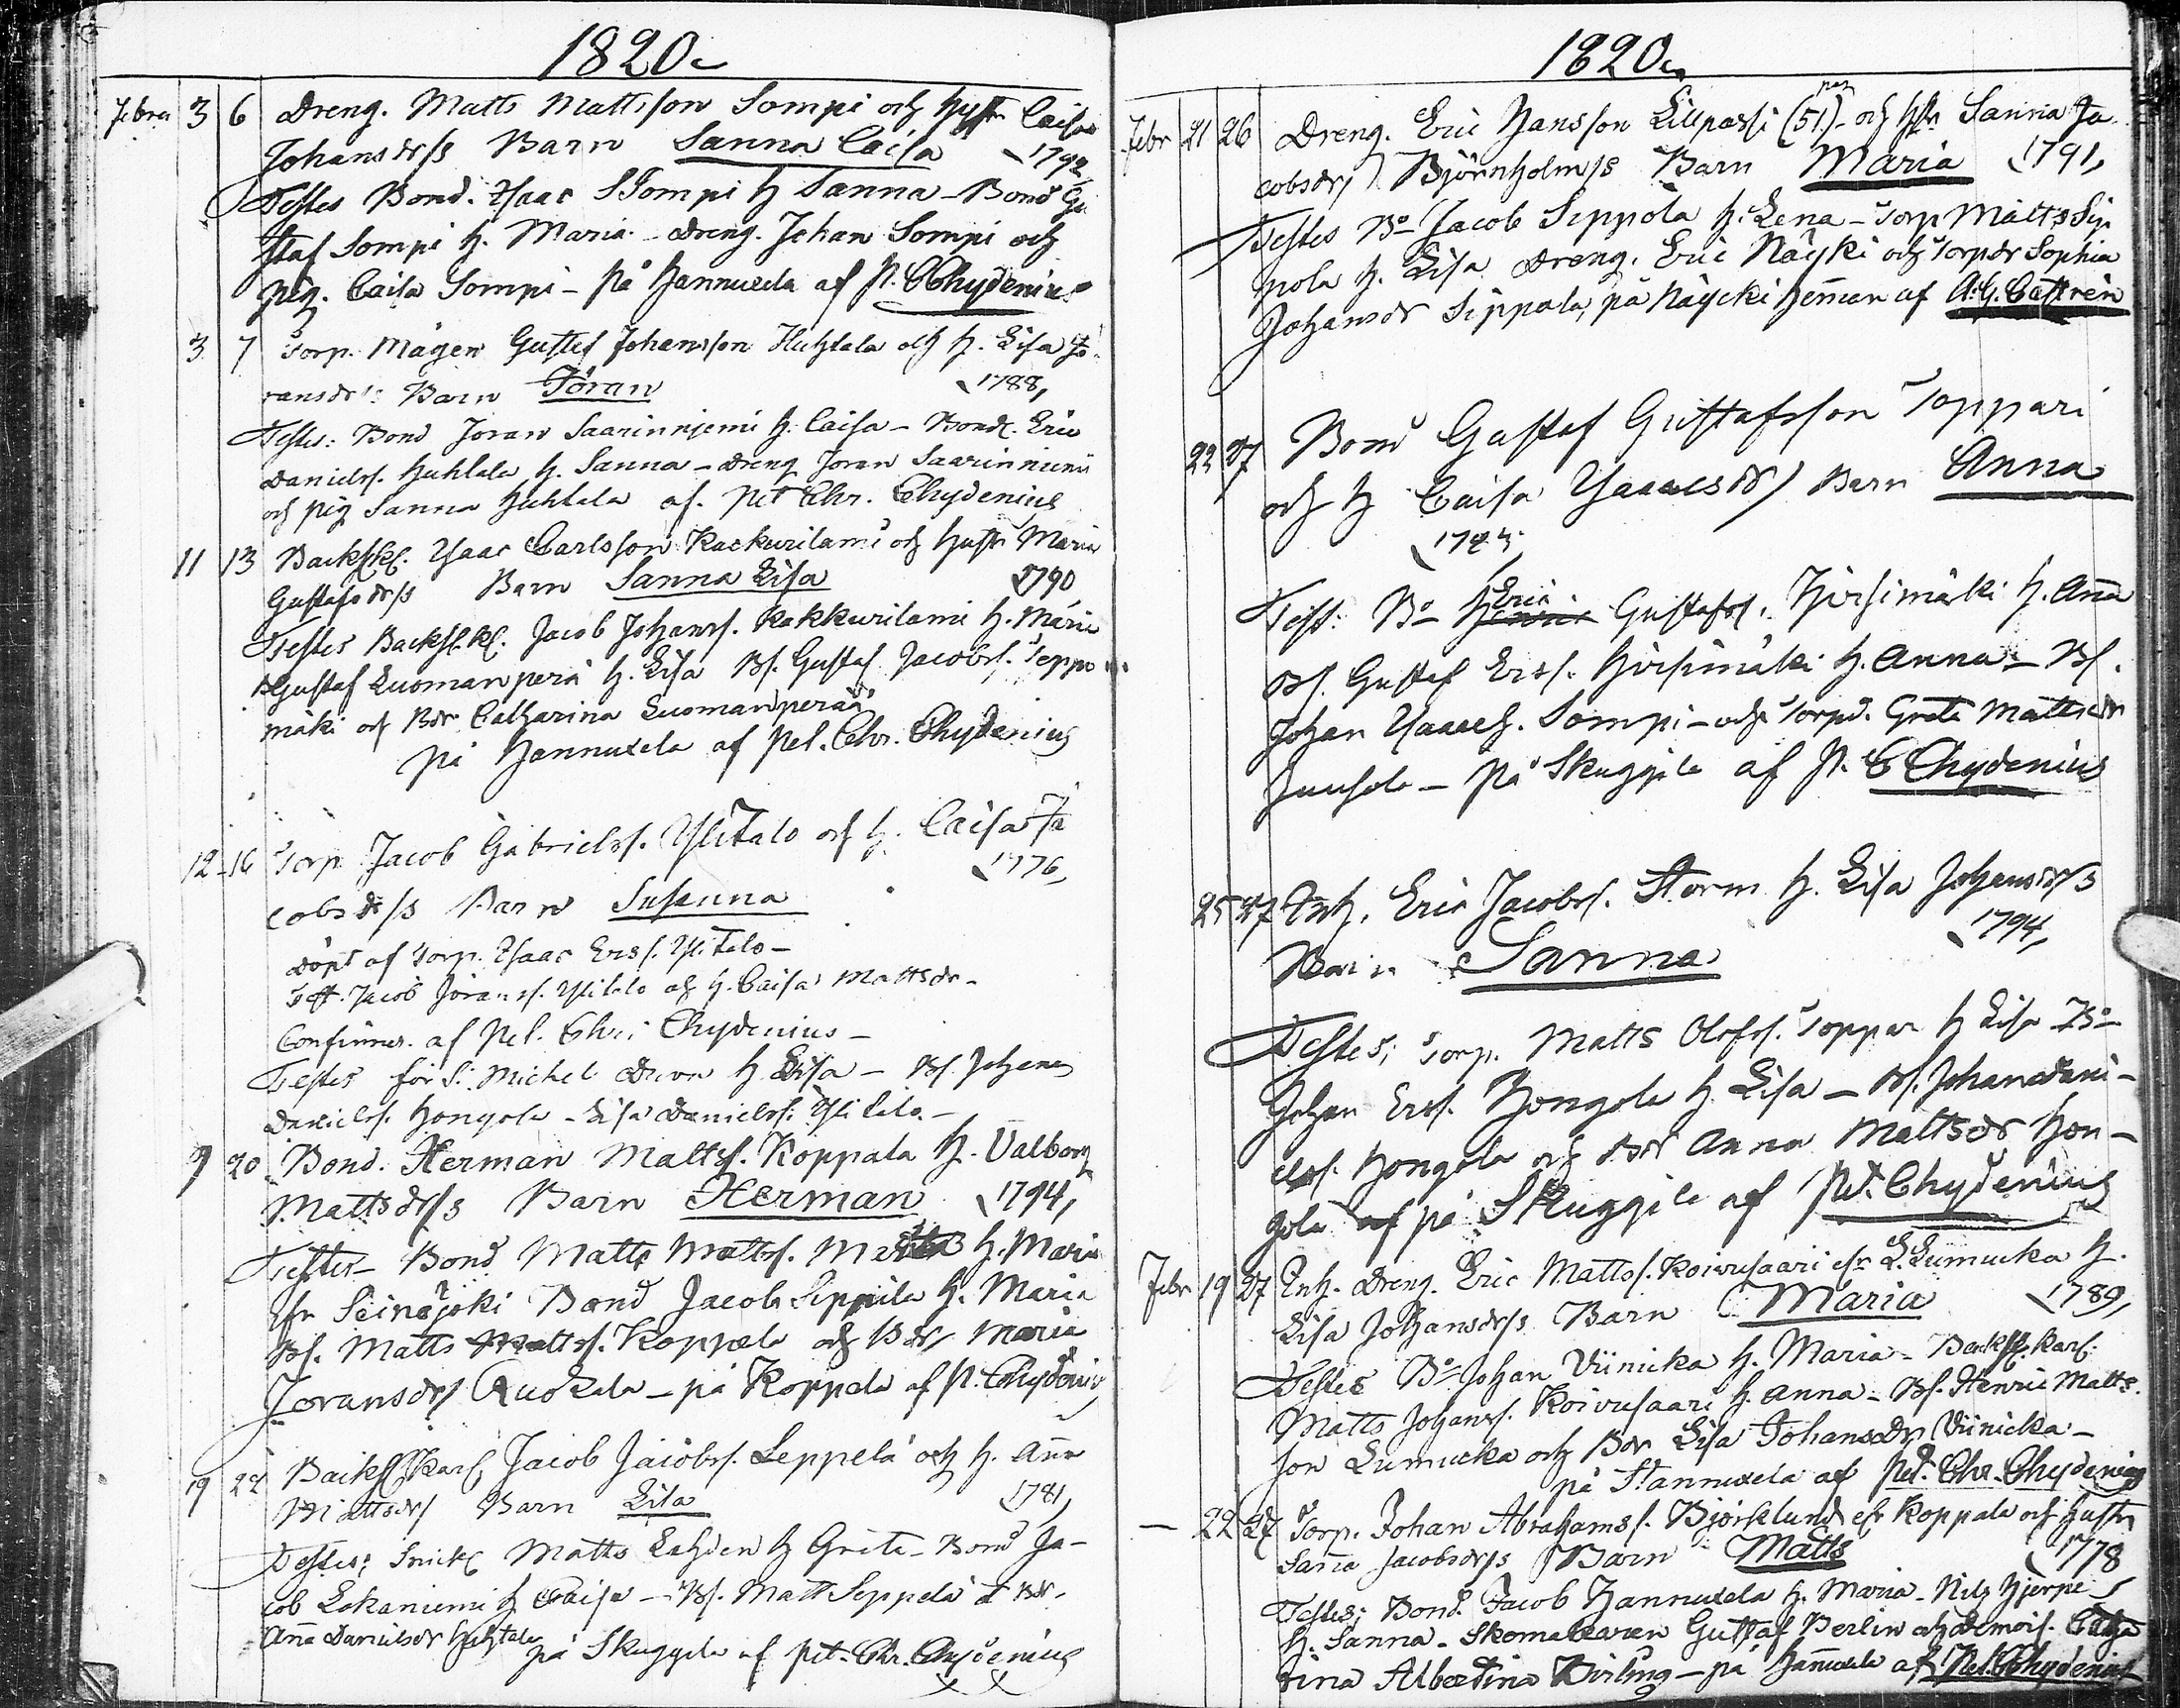 1820
Febru 3 6 Dreng. Matts Mattsson Sompi och Hustr Caisa
Johansdrs Barn Sanna Caisa 1792
Testes Bond. Isaac Sompi h Sanna - Bond Gu
staf Sompi h. Maria - Dreng. Johan Sompi och
pig. Caisa Sompi - På Hannuxela af P. C Chydenius
3 7 Torp. Mågen Gustef Johansson Huhtala och h. Lisa Jö
ransdrs Barn Jöran 1788,
Testes: Bond Joran Saarinniemi h. Caisa - Bond. Eric
Daniels. Huhtala h. Sanna - Dreng Joran Saarinniemi
och pig Sanna Huhtala af. Pet Chr. Chydenius
11 13 Backstkl. Isaac Carlsson Kackurilami och Hustr Maria
Gustafsdrs Barn Sanna Lisa 1790
Testes Backst.kl. Jacob Johanss. Kakkurilami h. Maria
Gustaf Luomanperä h. Lisa Bs. Gustaf Jacobs. Seppo
mäki och Bdr Catharina Luomanperää
på Hannuxela af Pet. Chr. Chydenius
12 16 Torp Jacob Gabrielss. Ylitalo och h. Caisa Ja
cobsdrs Barn Susanna 1776,
döpt af Torp. Isaac Erss. Ylitalo -
Test. Jacob Jöranss. Ylitalo och h. Caisa Mattsdr -
Confirmer. af Pet. Chr. Chydenius -
Testes för S. Michel h Lisa - Bs. Johan
Daniels. Hongola - Lisa Daniels. Ylitalo -
9 20 Bond. Herman Matts. Koppala h. Valborg
Mattsdrs Barn Herman 1794,
Testes - Bond Matts Mattss. h. Maria
fr Seinäjoki Bond Jacob Seppila h. Maria
Bs. Matts Mattss. Koppala och Bdr Maria
Joransdr Ruokala - på Koppala af P. Chydenius
19 22 Backst.karl Jacob Jacobs. Seppelä och h. Anna
Mattsdrs Barn Lisa 1781,
Testes; Snick Matts Lahden h Greta - Bond Ja-
cob Lokaniemi h Caisa - Bs. Matt Seppelä o Bdr.
Anna Danielsdr Huhtala
på Skuggila af Pet. Chr. Chydenius
1820
Febr 21 26 Dreng. Eric Hansson Lillpassi (51) och hstr Sanna Ja
cobsdr Björnholms Barn Maria 1791,
Testes Bo Jacob Seppola h. Lena - Torp Matts Sip
pola h. Lisa Dreng. Eric Näyki och Torpdr Sophia
Johansdr Sippola, på Näycki heman af A.G. Castren
22 27 Bond Gustaf Gustafsson Toppari
och h Caisa Isaacsdr Barn Anna
Test: Bo Eric Gustafss. Hirsimäki h. Anna
Bs. Gustaf Erss. Hirsimäki h. Anna - Bs.
Johan Isaacs. Sompi - och Torpd. Greta Mattsdr
Juusola - på Skuggila af P. C Chydenius
25 27 Inh. Eric Jacobs. Storm h. Lisa Johansdrs
Barn Sanna 1794,
Testes; Torp. Matts Olofss. Toppar h Lisa - Bo
Johan Erss. Hongola h. Lisa - Bs. Johan Dani-
elss. Hongola och Bdr Anna Mattsdr Hon-
gola på Skuggila af Pet. Chydenius
Febr 19 27 Inh. Dreng. Eric Mattss. Koivusaari fr L. Lumucka h.
Lisa Johansdrs Barn Maria 1789,
Testes Bo Johan Viinicka h. Maria - Backst. karl.
Matts Johanss. Koivusaari h. Anna - Bs. Henric Matts
son Lumucka och Bdr Lisa Johansdr Viinicka -
på Hannuxela af Pet. Chr. Chydenius
- 22 27 Torp. Johan Abrahamss. Björklund fr Koppala och hustr
Sanna Jacobsdrs Barn Matts 1778
Testes; Bond. Jacob Hannuxela h. Maria - Nils Hjerpe
h. Sanna - Skomakaren Gustaf Berlin och Demois. Catha
rina Albertina - på Hannuxela af Pet. Chydenius